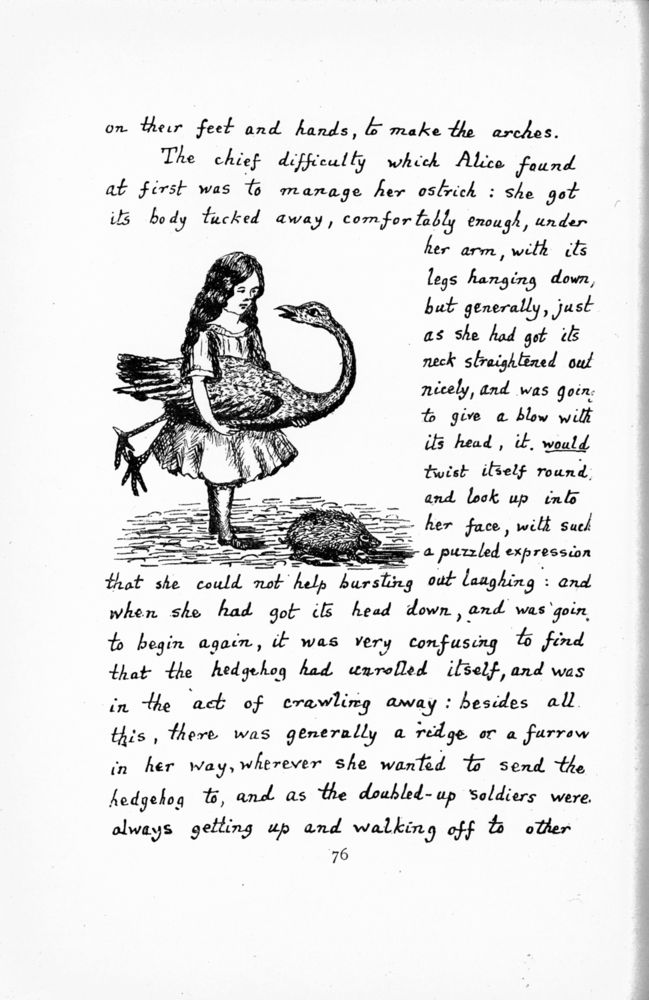 on their feet and hands, to make the arches.
The chief difficulty which Alice found
at first was to manage her ostrich : she got
its body tucked away, comfortably enough, under
her arm, with its
legs hanging down,
but generally, just
as she had got its
neck straightened out
nicely, and was goin
to give a blow with
its head, it would
twist itself round,
and look up into
her face, with such
a puzzled expression
that she could not help bursting out laughing : and
when she had got its head down, and was goin
to begin again, it was very confusing to find
that the hedgehog had unrolled itself, and was
in the act of crawling away : besides all
this, there was generally a ridge or a furrow
in her way, wherever she wanted to send the
hedgehog to, and as the doubled-up soldiers were
always getting up and walking off to other
76